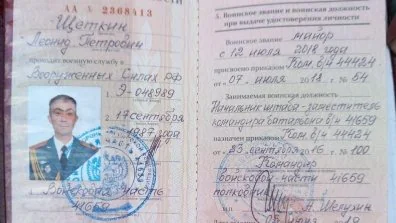 АА № 2368413
Щеткин
Леонид Петрович
проходит военную службу в
Вооруженных Силах РФ
Э-048989
17 сентября
1987 года
Войсковая часть
41659
3. Воинское звание и воинская должность
при выдаче удостоверения личности
Воинское звание майор
с 12 июля 2018 года
присвоено приказом Ком в/ч 44424
от "07" июля 2018 г. № 54
Занимаемая воинская должность
Начальник штаба-заместитель
командира батальона в/ч 41659
назначен приказом Ком в/ч
44424
"23" сентября 2016 № 100
Командир
войсковой части 41659
полковник
А. Шелухин
19